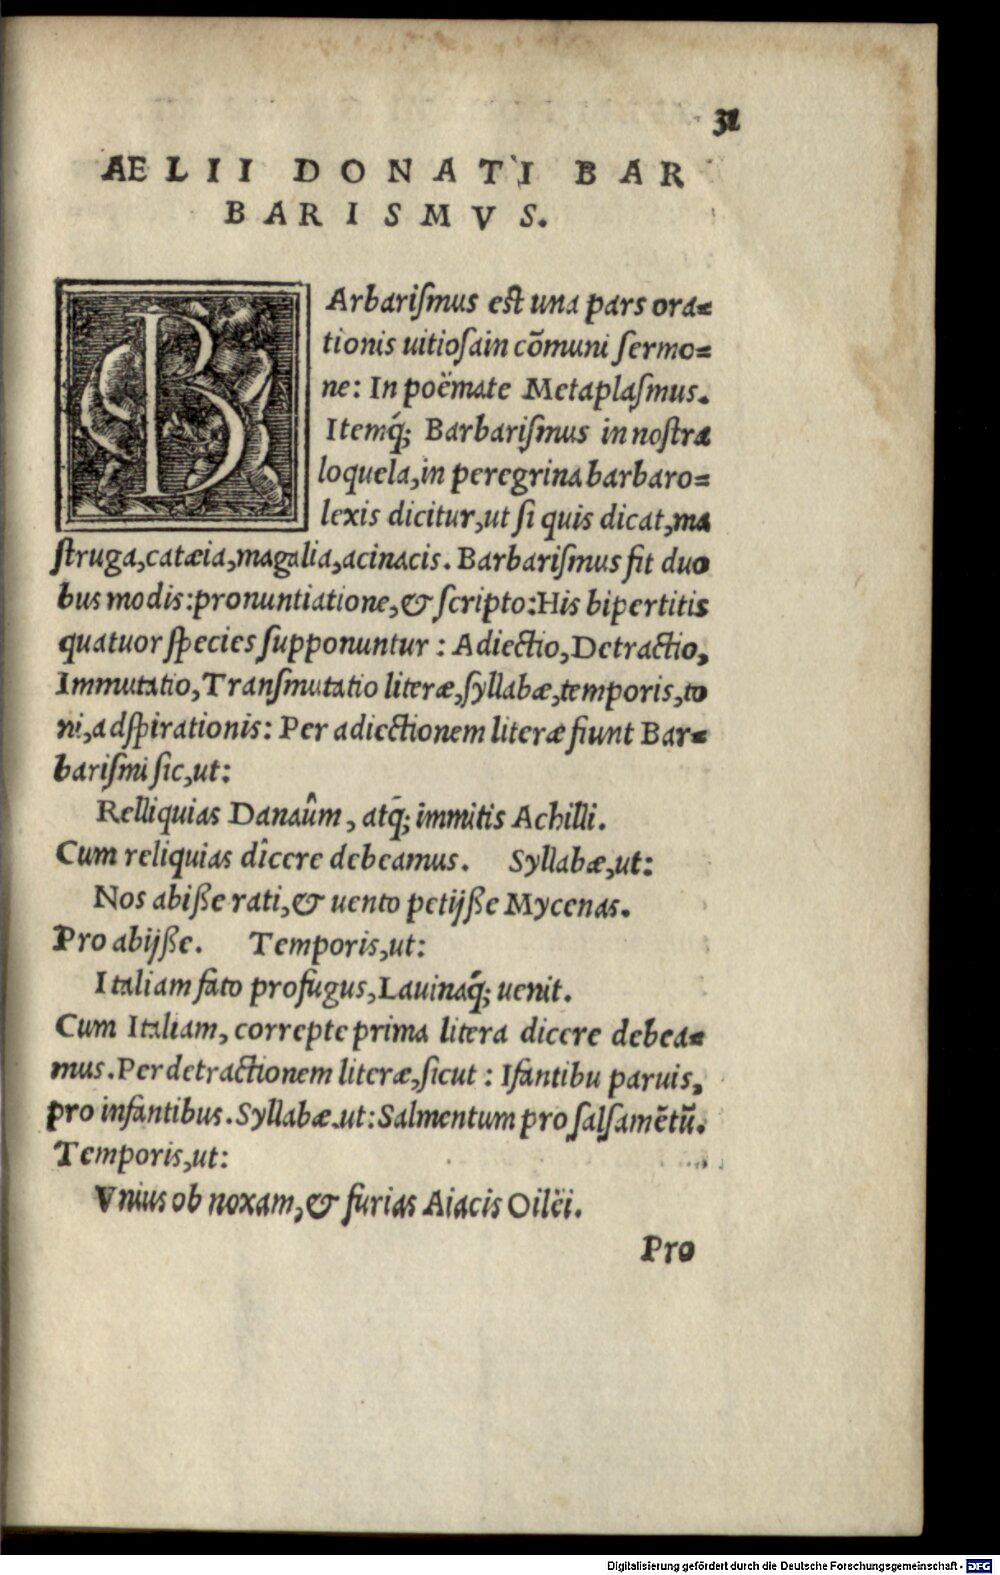 31
AELII DONATI BAR
BARISMVS.
BArbariſmus est una pars ora=
tionis uitioſa in cōmuni ſermo=
ne: In poëmate Metaplaſmus.
Itemq́; Barbariſmus in noſtra
loquela, in peregrina barbaro=
lexis dicitur, ut ſi quis dicat, ma
ſtruga, catæia, magalia, acinacis. Barbariſmus fit duo
bus modis: pronuntiatione, & ſcripto: His bipertitis
quatuor ſpecies ſupponuntur: Adiectio, Detractio,
Immutatio, Tranſmutatio literæ, ſyllabæ, temporis, to
ni, adſpirationis: Per adiectionem literæ fiunt Bar=
bariſmi ſic, ut:
Relliquias Danaûm, atq́; immitis Achilli.
Cum reliquias dicere debeamus. Syllabæ, ut:
Nos abiſſe rati, & uento petijſſe Mycenas.
Pro abijſſe. Temporis, ut:
Italiam fato profugus, Lauinaq́; uenit.
Cum Italiam, correpte prima litera dicere debea=
mus. Per detractionem literæ, ſicut: Ifantibu paruis,
pro infantibus. Syllabæ, ut: Salmentum pro ſalſamētū.
Temporis, ut:
Vnius ob noxam, & furias Aiacis Oilëi.
Pro
Digitalisierung gefördert durch die Deutsche Forschungsgemeinschaft - DFG